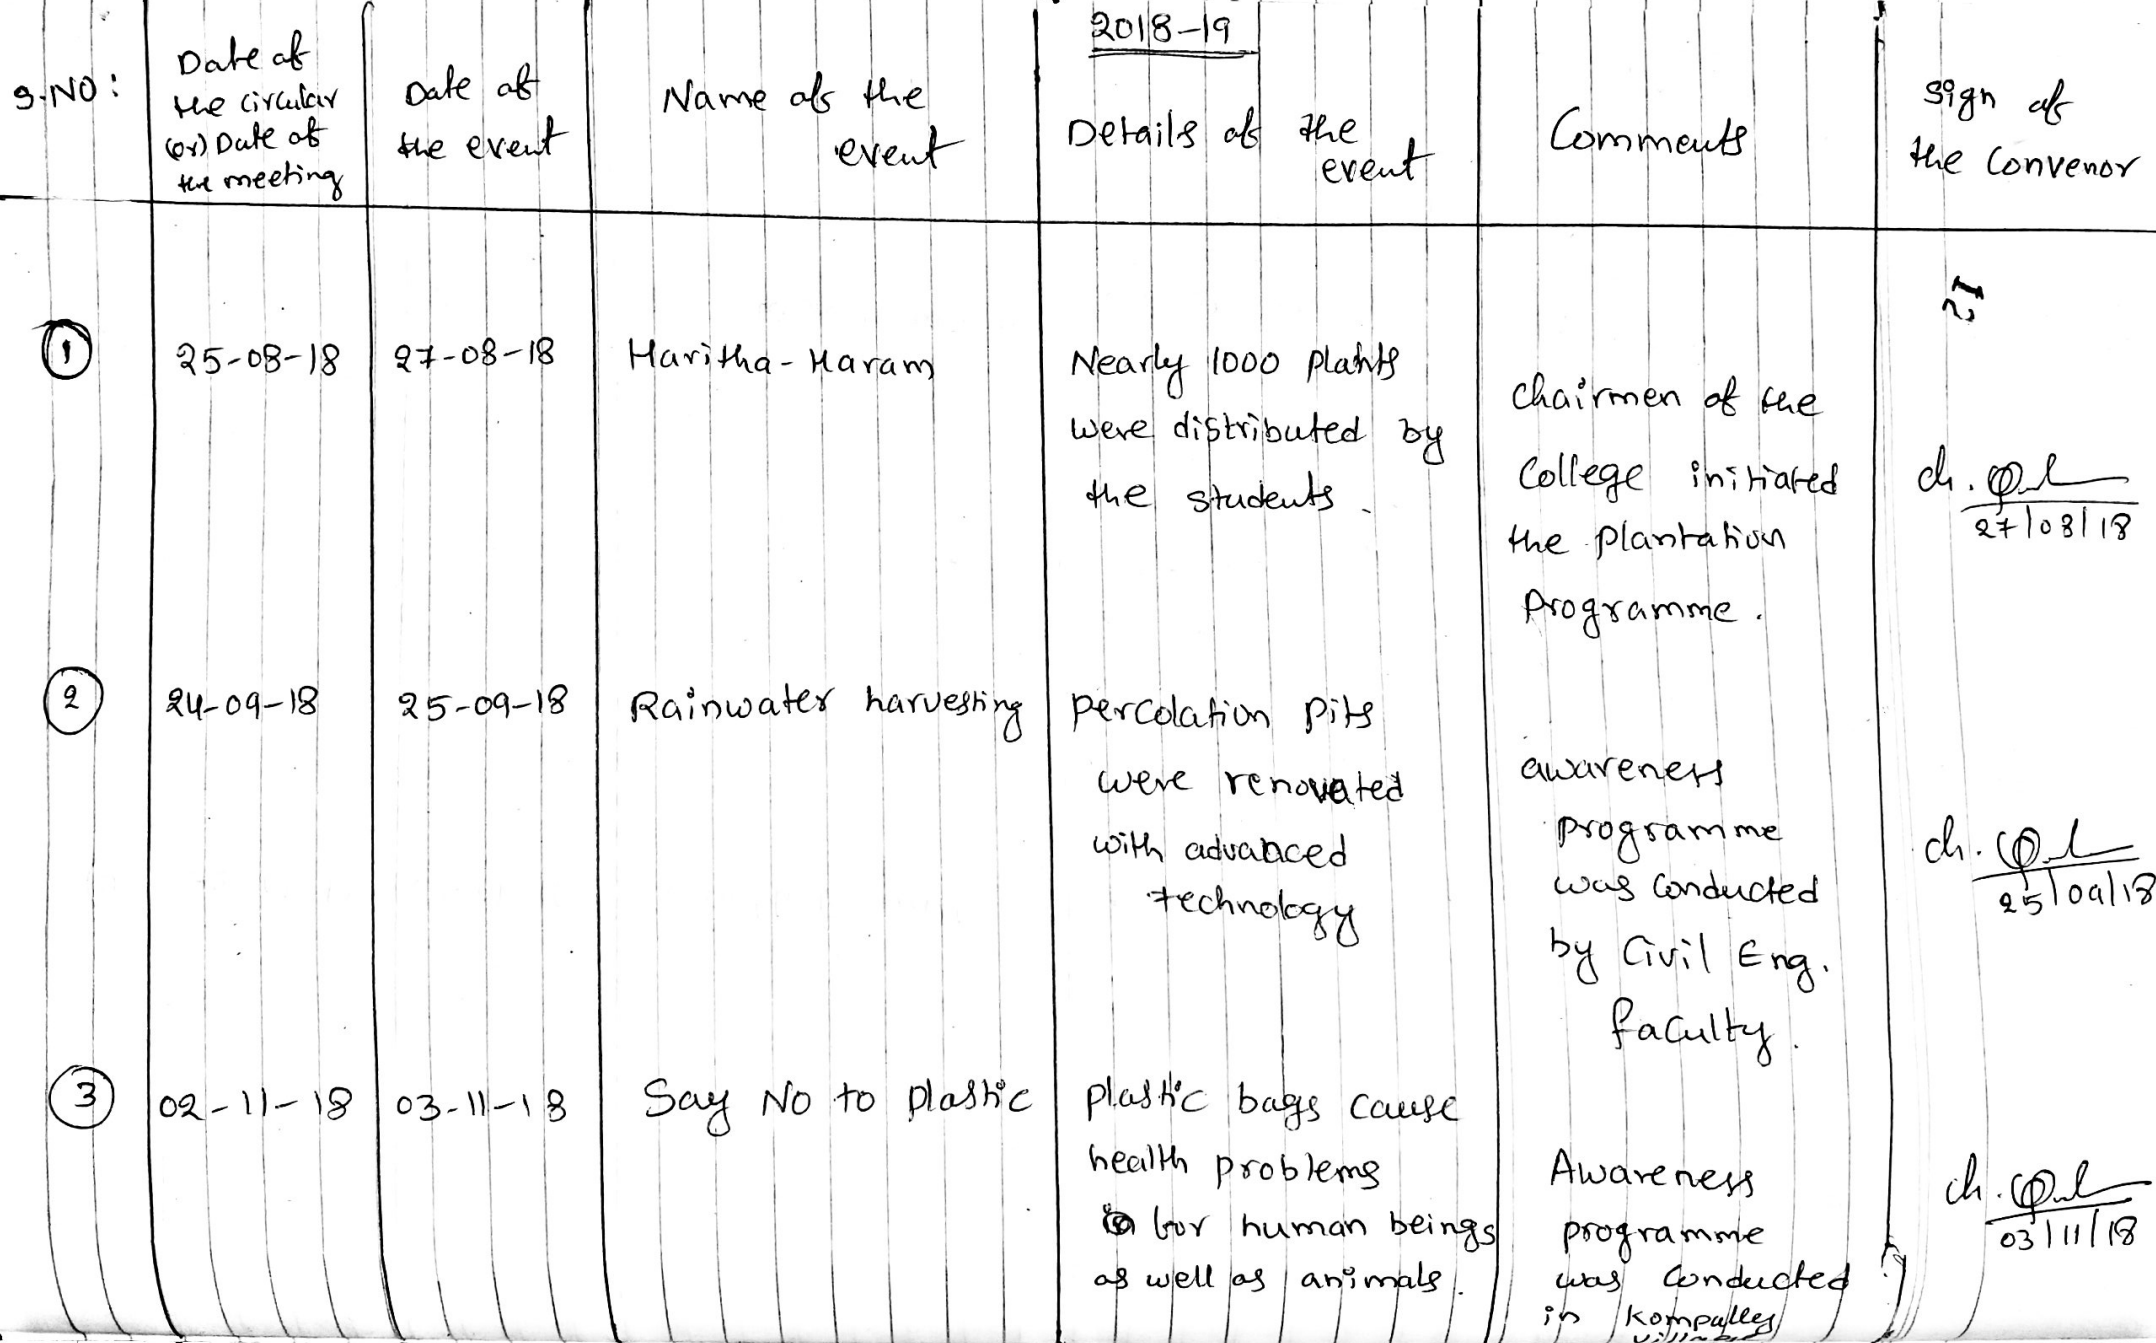 2018-19
S.NO:
Date of
the circular
(or) Date of
the meeting
Date of
the event
Name of the
event
Details of the
event
Comments
Sign of
the Convenor
1
25-08-18
27-08-18
Haritha-Haram
Nearly 1000 plants
were distributed by
the students.
Chairmen of the
College initiated
the plantation
programme.
ch.
27/08/18
2
24-09-18
25-09-18
Rainwater harvesting
percolation pits
were renovated
with advanced
technology
awareness
programme
was conducted
by Civil Eng.
faculty.
ch.
25/09/18
3
02-11-18
03-11-18
Say No to plastic
plastic bags cause
health problems
for human beings
as well as animals.
Awareness
programme
was conducted
in Kompally
ch.
03/11/18